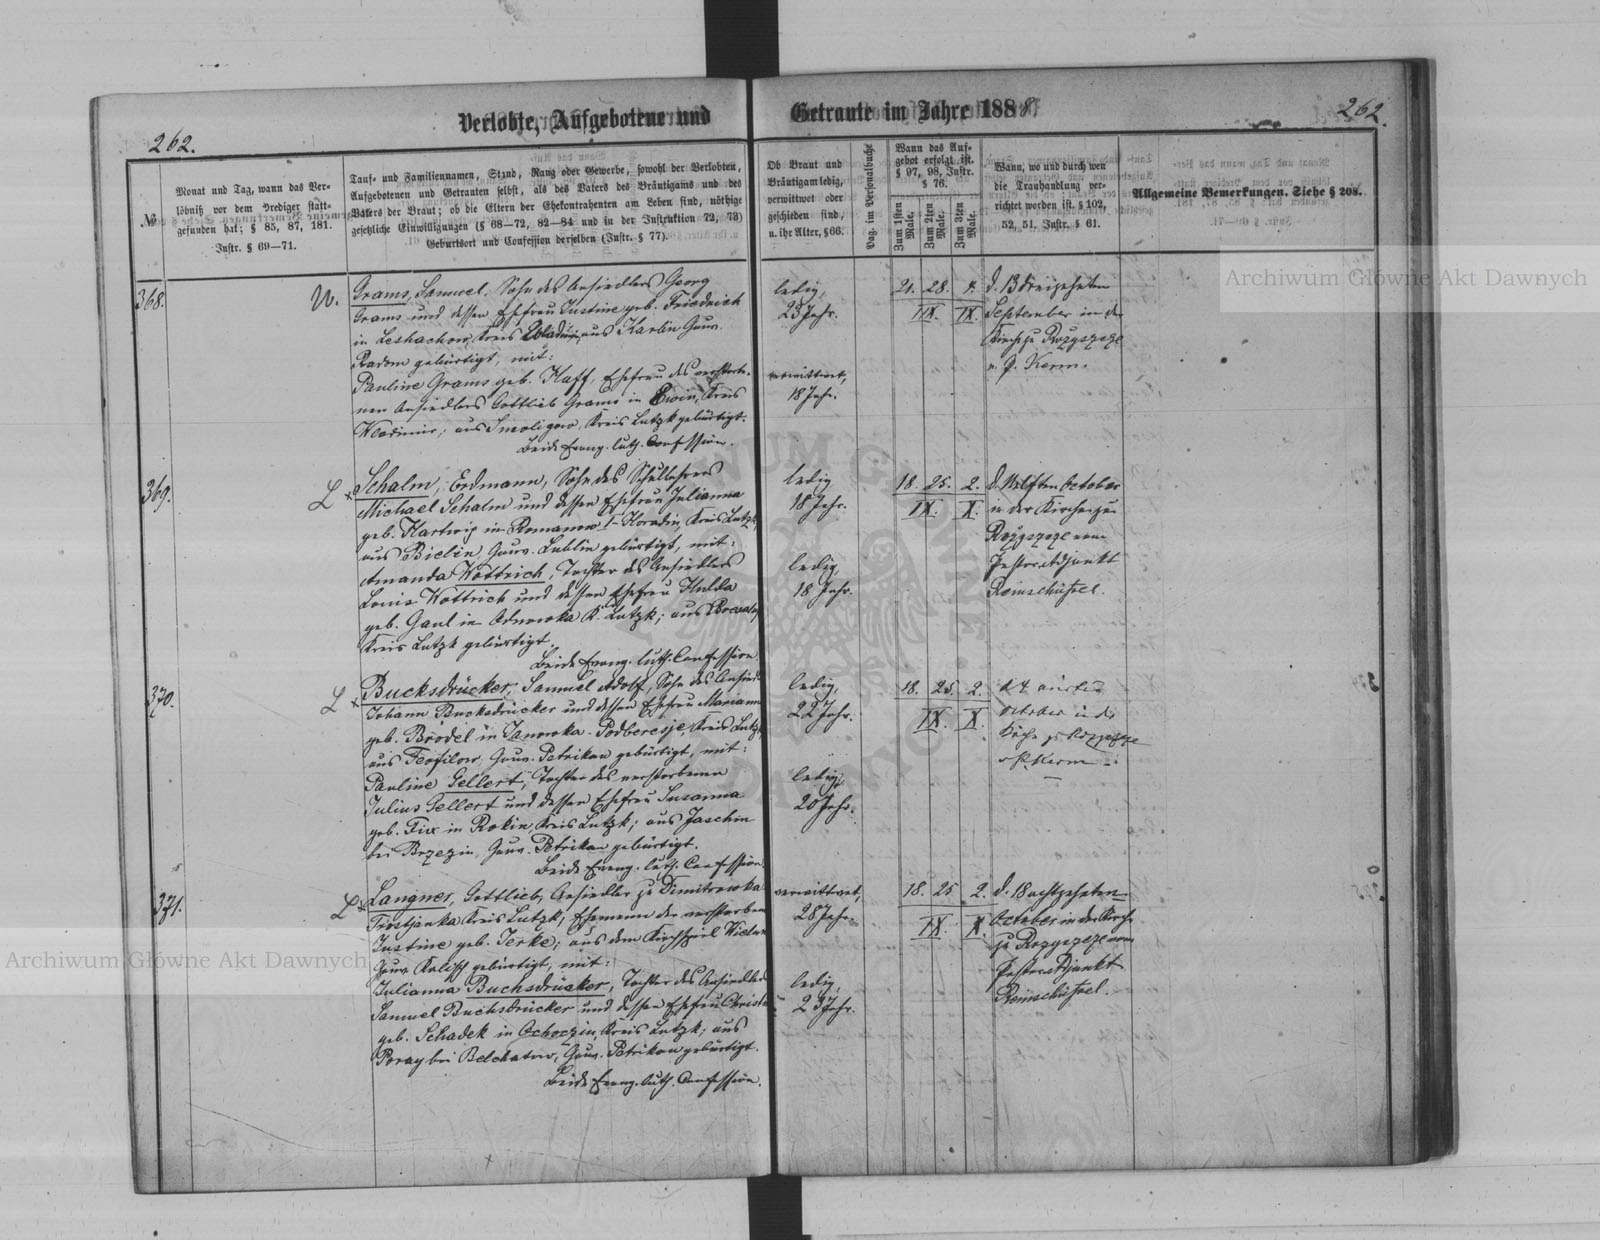 Verlobte, Aufgebotene und Getraute im Jahre 1888.
262.
262.
№
Monat und Tag, wann das Verlöbniß vor dem Prediger stattgefunden hat; § 85, 87, 181.
Instr. § 69—71.
Tauf- und Familiennamen, Stand, Rang oder Gewerbe, sowohl der Verlobten,
Aufgebotenen und Getrauten selbst, als des Vaters des Bräutigams und des
Vaters der Braut; ob die Eltern der Ehekontrahenten am Leben sind, nöthige
gesetzliche Einwilligungen (§ 68—72, 82—84 und in der Instruktion 72, 73)
Geburtsort und Confession derselben (Instr. § 77).
Ob Braut und
Bräutigam ledig,
verwittwet oder
geschieden sind,
u. ihr Alter, § 66.
Pag. im Personalbuche
Wann das Aufgebot erfolgt ist.
§ 97, 98, Instr.
§ 76.
Zum 1sten Male.
Zum 2ten Male.
Zum 3ten Male.
Wann, wo und durch wen
die Trauhandlung verrichtet worden ist. § 102,
52, 51. Instr. § 61.
Allgemeine Bemerkungen. Siehe § 208.
368.
Grams, Samuel, Sohn des Ansiedlers Georg
Grams und dessen Ehefrau Justine geb. Friedrich
in Leshachow, Kreis Wladimir, aus Karlin Gouv.
Radom gebürtigt, mit:
Pauline Grams geb. Kaff, Ehefrau des verstorbenen Ansiedlers Gottlieb Grams in Kreis
Wladimir; aus Smoligow, Kreis Lutzk gebürtigt.
Beide Evang. luth. Confession.
ledig,
23 Jahr.
verwittwet,
18 Jahr.
21. 28. 4.
IX. IX.
d. 13 dreizehnten
September in der
Kirche zu Rozyszcze
v. P. Kerm.
369.
L x
Schalm, Erdmann, Sohn des Schullehrers
Michael Schalm und dessen Ehefrau Julianna
geb. Hartwig in Romanow I-Horadin, Kreis Lutzk
aus Bielin, Gouv. Lublin gebürtigt, mit:
Amanda Wottrich, Tochter des Ansiedlers
Louis Wottrich und dessen Ehefrau Hulda
geb. Gaul in Adnowka K. Lutzk; aus
Kreis Lutzk gebürtigt.
Beide Evang. luth. Confession.
ledig
18 Jahr.
ledig,
18 Jahr.
18. 25. 2.
IX. X.
October
in der Kirche zu
Rozyszcze vom
Pastor-Adjunkt
Reinschüssel.
370.
L x
Bucksdrücker, Samuel Adolf, Sohn des Ansied.
Johann Bucksdrücker und dessen Ehefrau Marianna
geb. Brodel in Janowka-Podberesje, Kreis Lutzk,
aus Teofilow, Gouv. Petrikau gebürtigt, mit:
Pauline Gellert, Tochter des verstorbenen
Julius Gellert und dessen Ehefrau Susanna
geb. Fix in Rokin, Kreis Lutzk; aus Jaschin
bei Brzezin, Gouv. Petrikau gebürtigt.
Beide Evang. luth. Confession.
ledig,
22 Jahr.
ledig,
20 Jahr.
18. 25. 2.
IX. X.
October in der
Kirche zu Rozyszcze
v. P. Kerm.
371.
L x
Langner, Gottlieb, Ansiedler zu Dimitrowka
Trostjanka Kreis Lutzk, Ehemann der verstorbenen
Justine geb. Jerke; aus dem Kirchspiel Wielun
Gouv. Kalisch gebürtigt, mit:
Julianna Buchsdrücker, Tochter des Ansiedlers
Samuel Buchsdrücker und dessen Ehefrau Christine
geb. Schadek in Ochoczin, Kreis Lutzk; aus
Poray bei Belchatow, Gouv. Petrikau gebürtigt.
Beide Evang. luth. Confession.
verwittwet,
28 Jahr.
ledig,
23 Jahr.
18. 25. 2.
IX. X.
d. 18 achtzehnten
October in der Kirche
zu Rozyszcze vom
Pastor-Adjunkt
Reinschüssel.
Archiwum Główne Akt Dawnych
Archiwum Główne Akt Dawnych